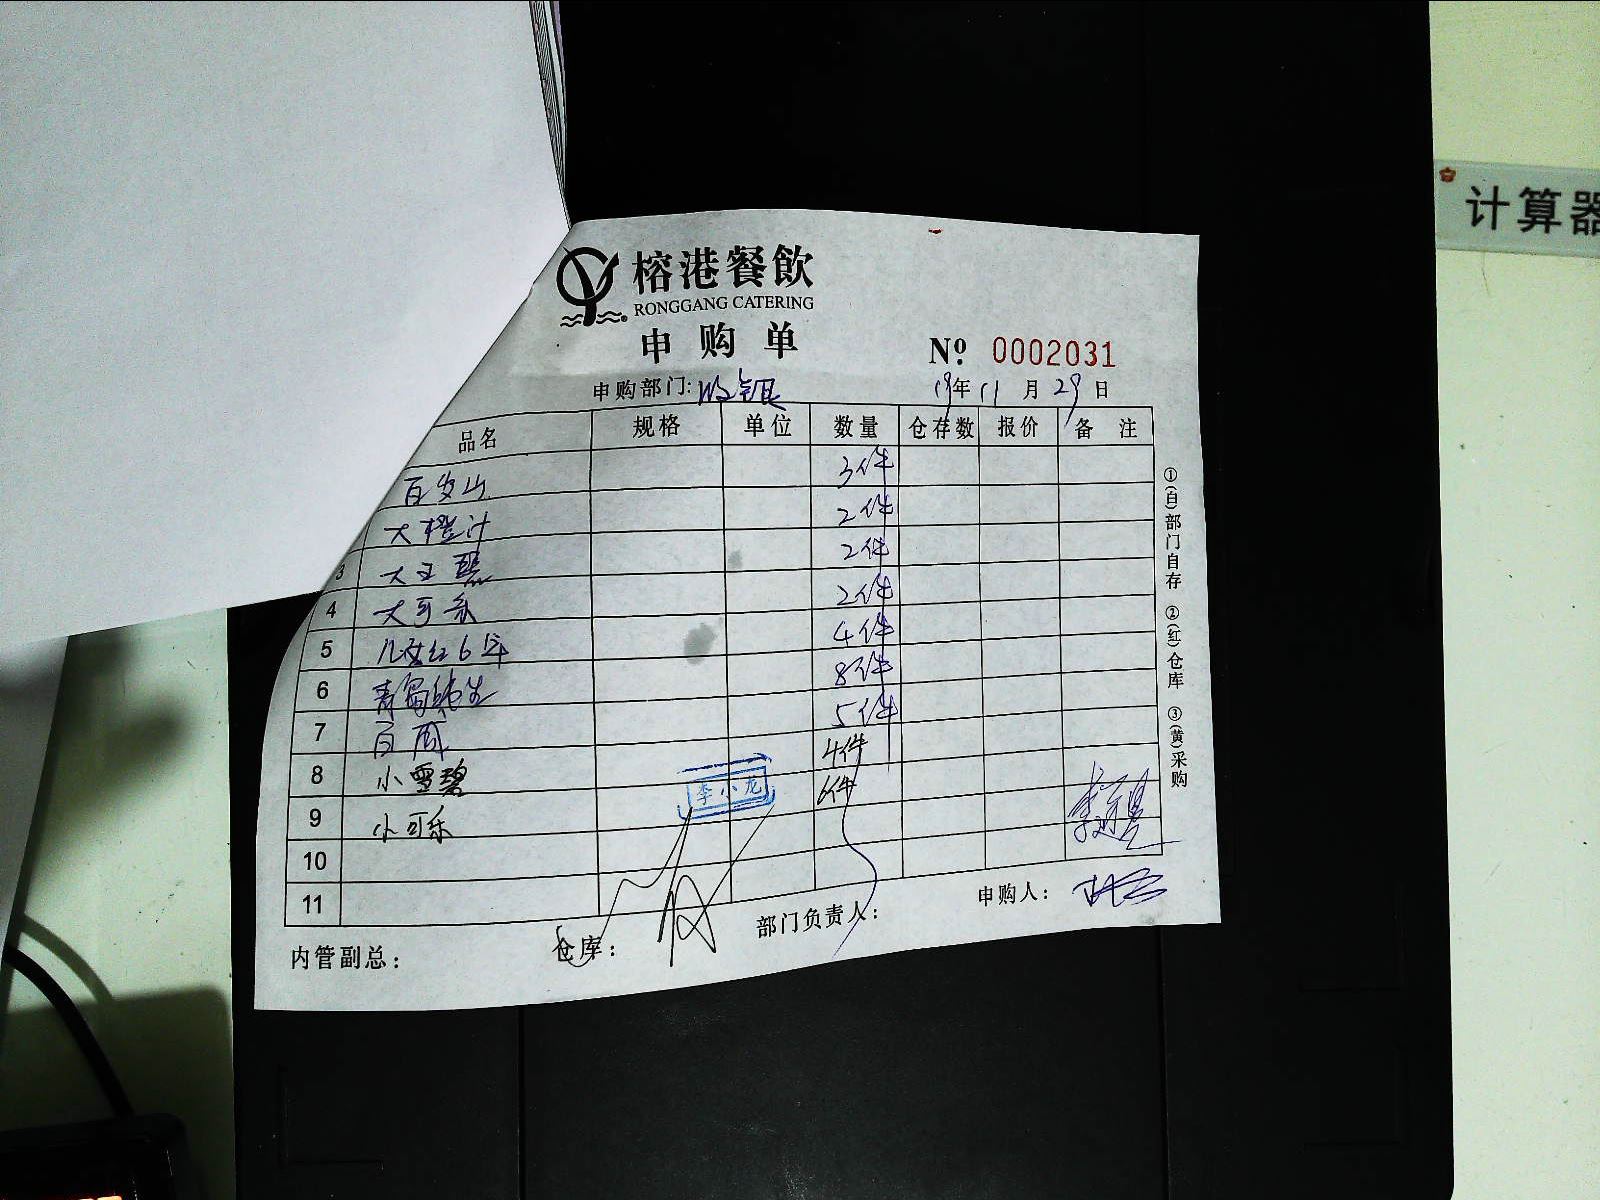 计算器
榕港餐飲
RONGGANG CATERING
申购单
Nº 0002031
申购部门: 收银 19年 11月 29日
品名 规格 单位 数量 仓存数 报价 备注
百岁山 3件
大橙汁 2件
3 大王 2件
4 大可乐 2件
5 儿女红6年 4件
6 青岛纯生 8件
7 百威 5件
8 小雪碧 4件
9 小可乐 6件
10
11
李小龙
内管副总: 仓库: 部门负责人: 申购人:
①(白)部门自存 ②(红)仓库 ③(黄)采购